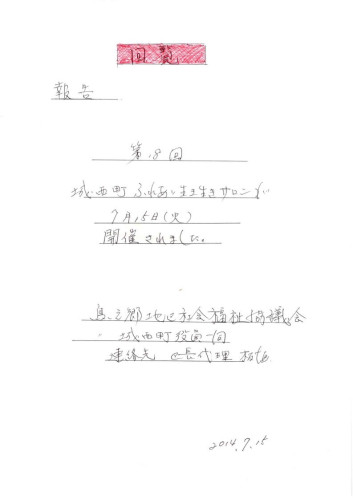 回覧
報告
第8回
城西町ふれあい生き生きサロンが
7月15日(火)
開催されました。
郷地区社会福祉協議会
城西町役員一同
連絡先 区長代理
2014.7.15